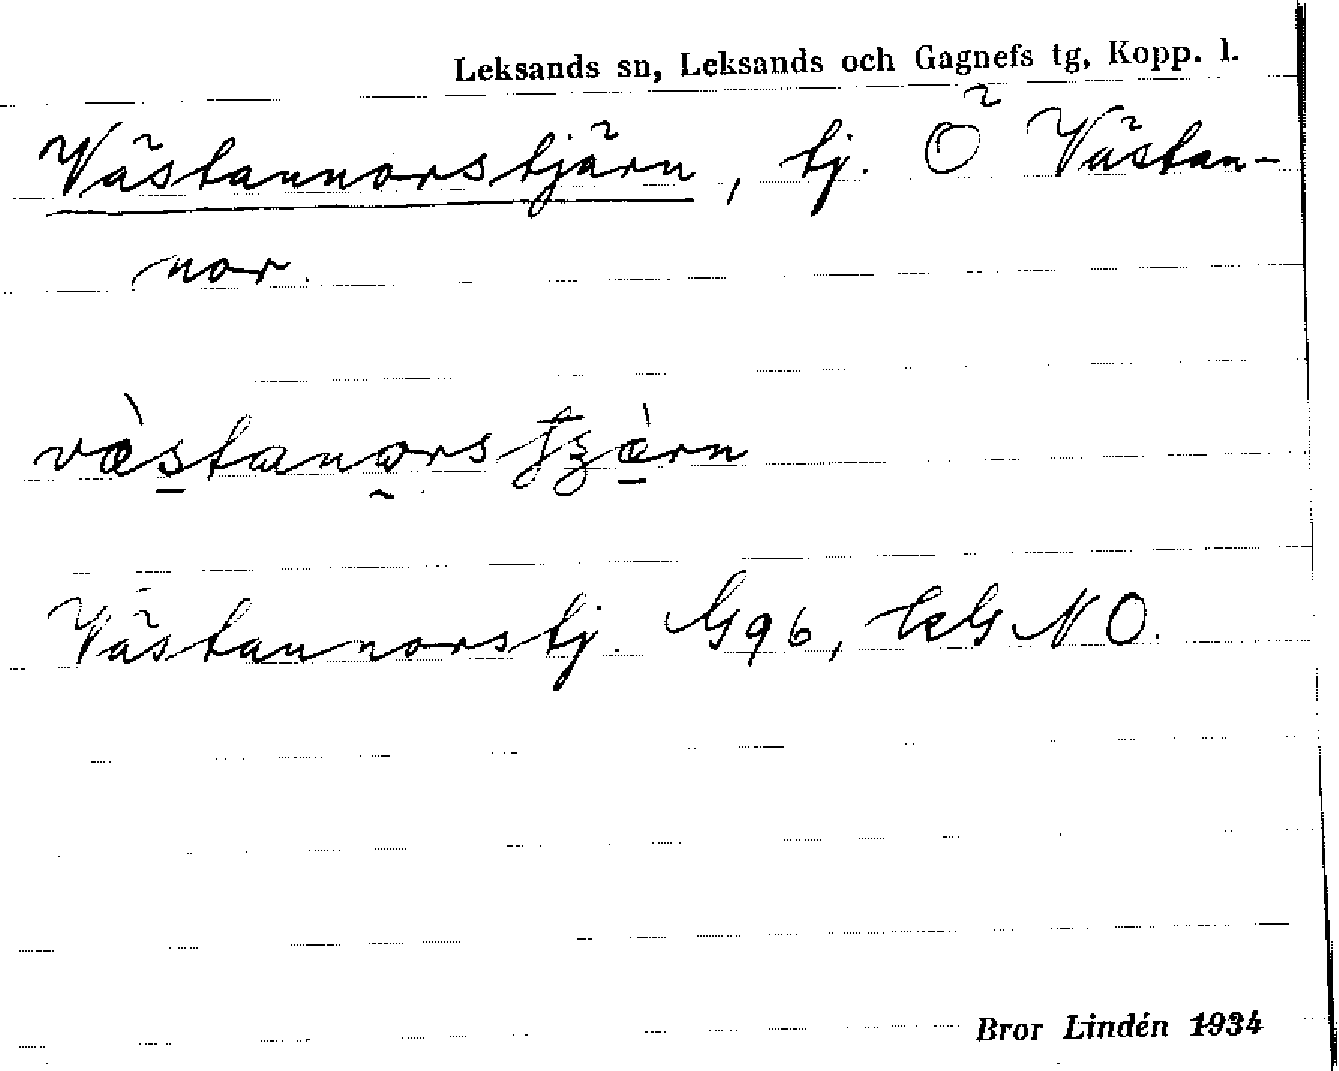 Leksands sn, Leksands och Gagnefs tg, Kopp. l.
Västannorstjärn, tj. Ö Västan-
nor.
Västannorstj. G96, NO.
Bror Lindén 1934